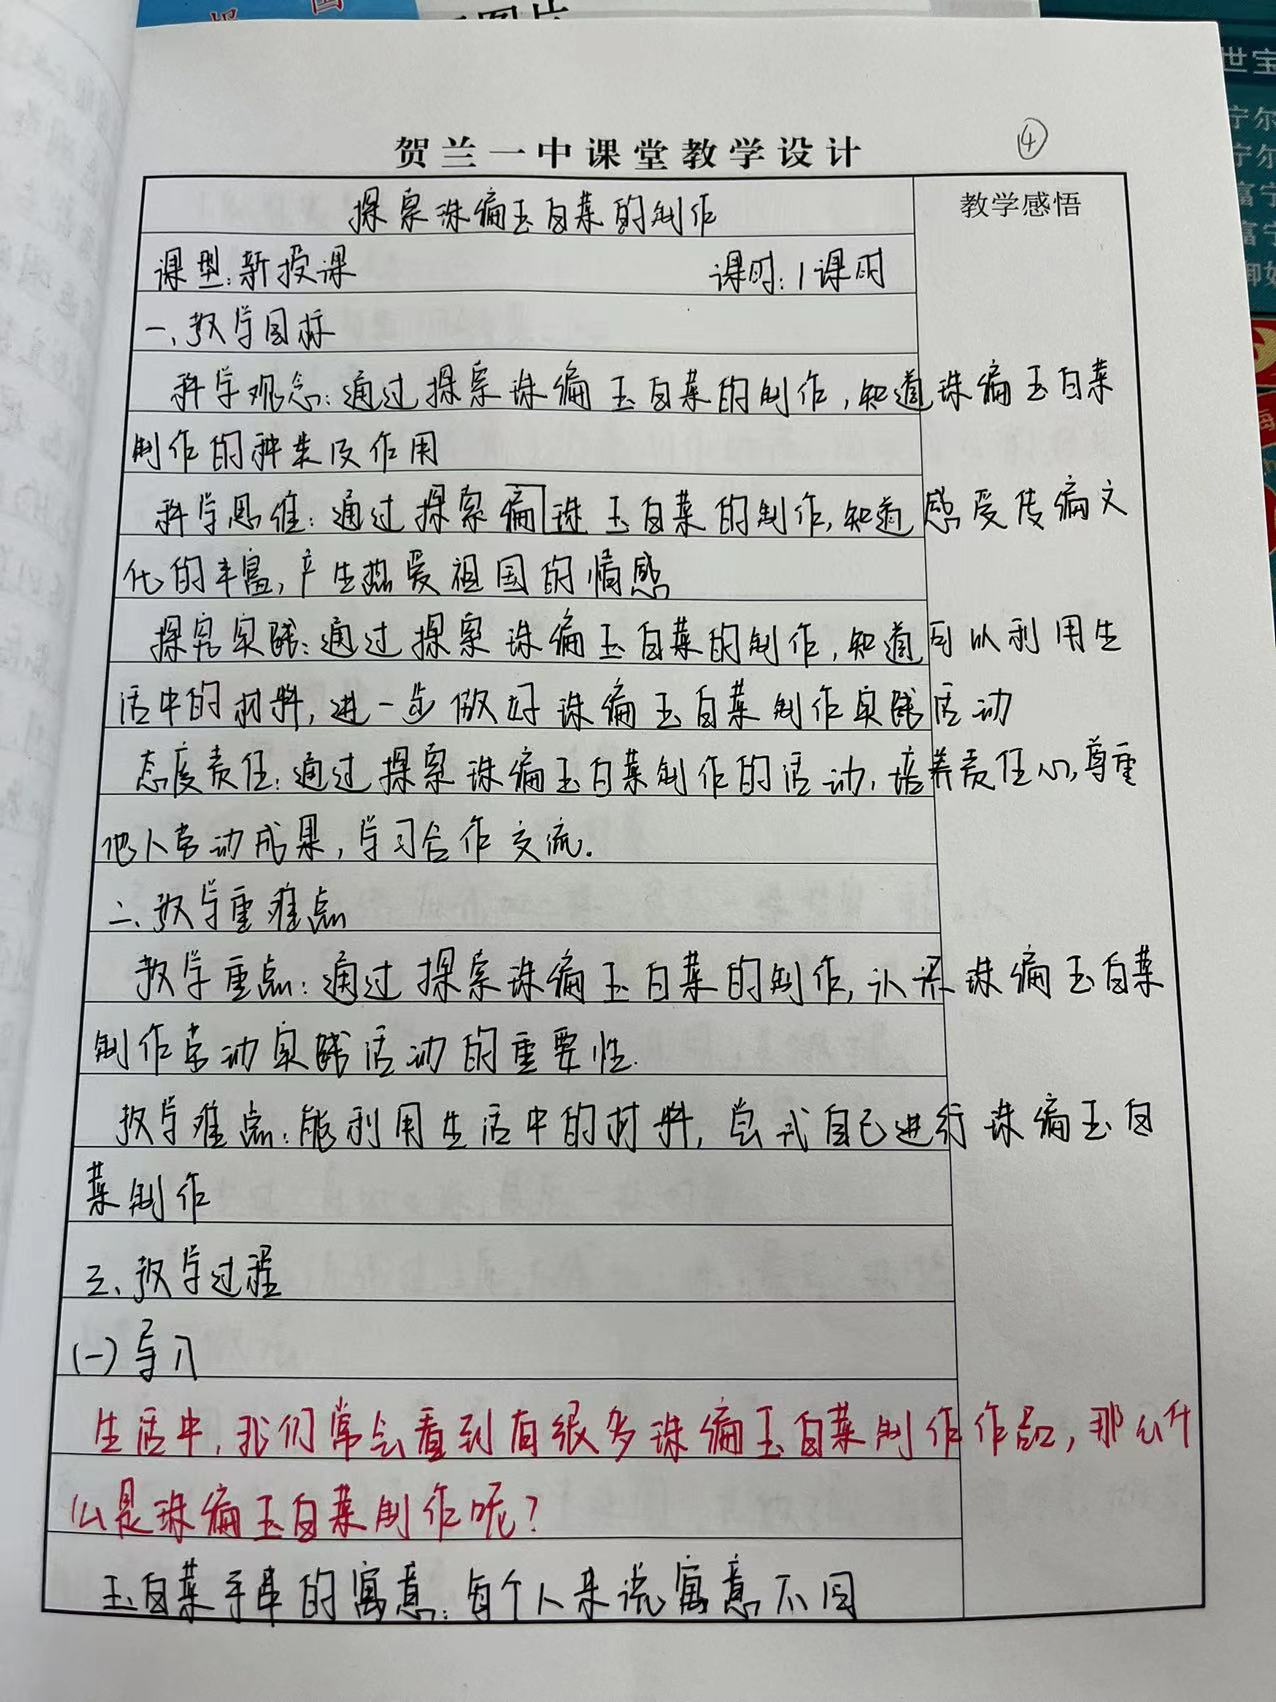 ④
贺兰一中课堂教学设计
教学感悟
探索珠编玉白菜的制作
课型:新授课 课时:1课时
一、教学目标
科学观念:通过探索珠编玉白菜的制作,知道珠编玉白菜
制作的种类及作用
科学思维:通过探索编珠玉白菜的制作,知道感受传编文
化的丰富,产生热爱祖国的情感
探究实践:通过探索珠编玉白菜的制作,知道可以利用生
活中的材料,进一步做好珠编玉白菜制作实践活动
态度责任:通过探索珠编玉白菜制作的活动,培养责任心,尊重
他人劳动成果,学习合作交流.
二、教学重难点
教学重点:通过探索珠编玉白菜的制作,认识珠编玉白菜
制作劳动实践活动的重要性.
教学难点:能利用生活中的材料,尝试自己进行珠编玉白
菜制作
三、教学过程
(一)导入
生活中,我们常会看到有很多珠编玉白菜制作作品,那么什
么是珠编玉白菜制作呢?
玉白菜手串的寓意:每个人来说寓意不同
世宝
宁尔
宁尔
富宁
富宁
御妙